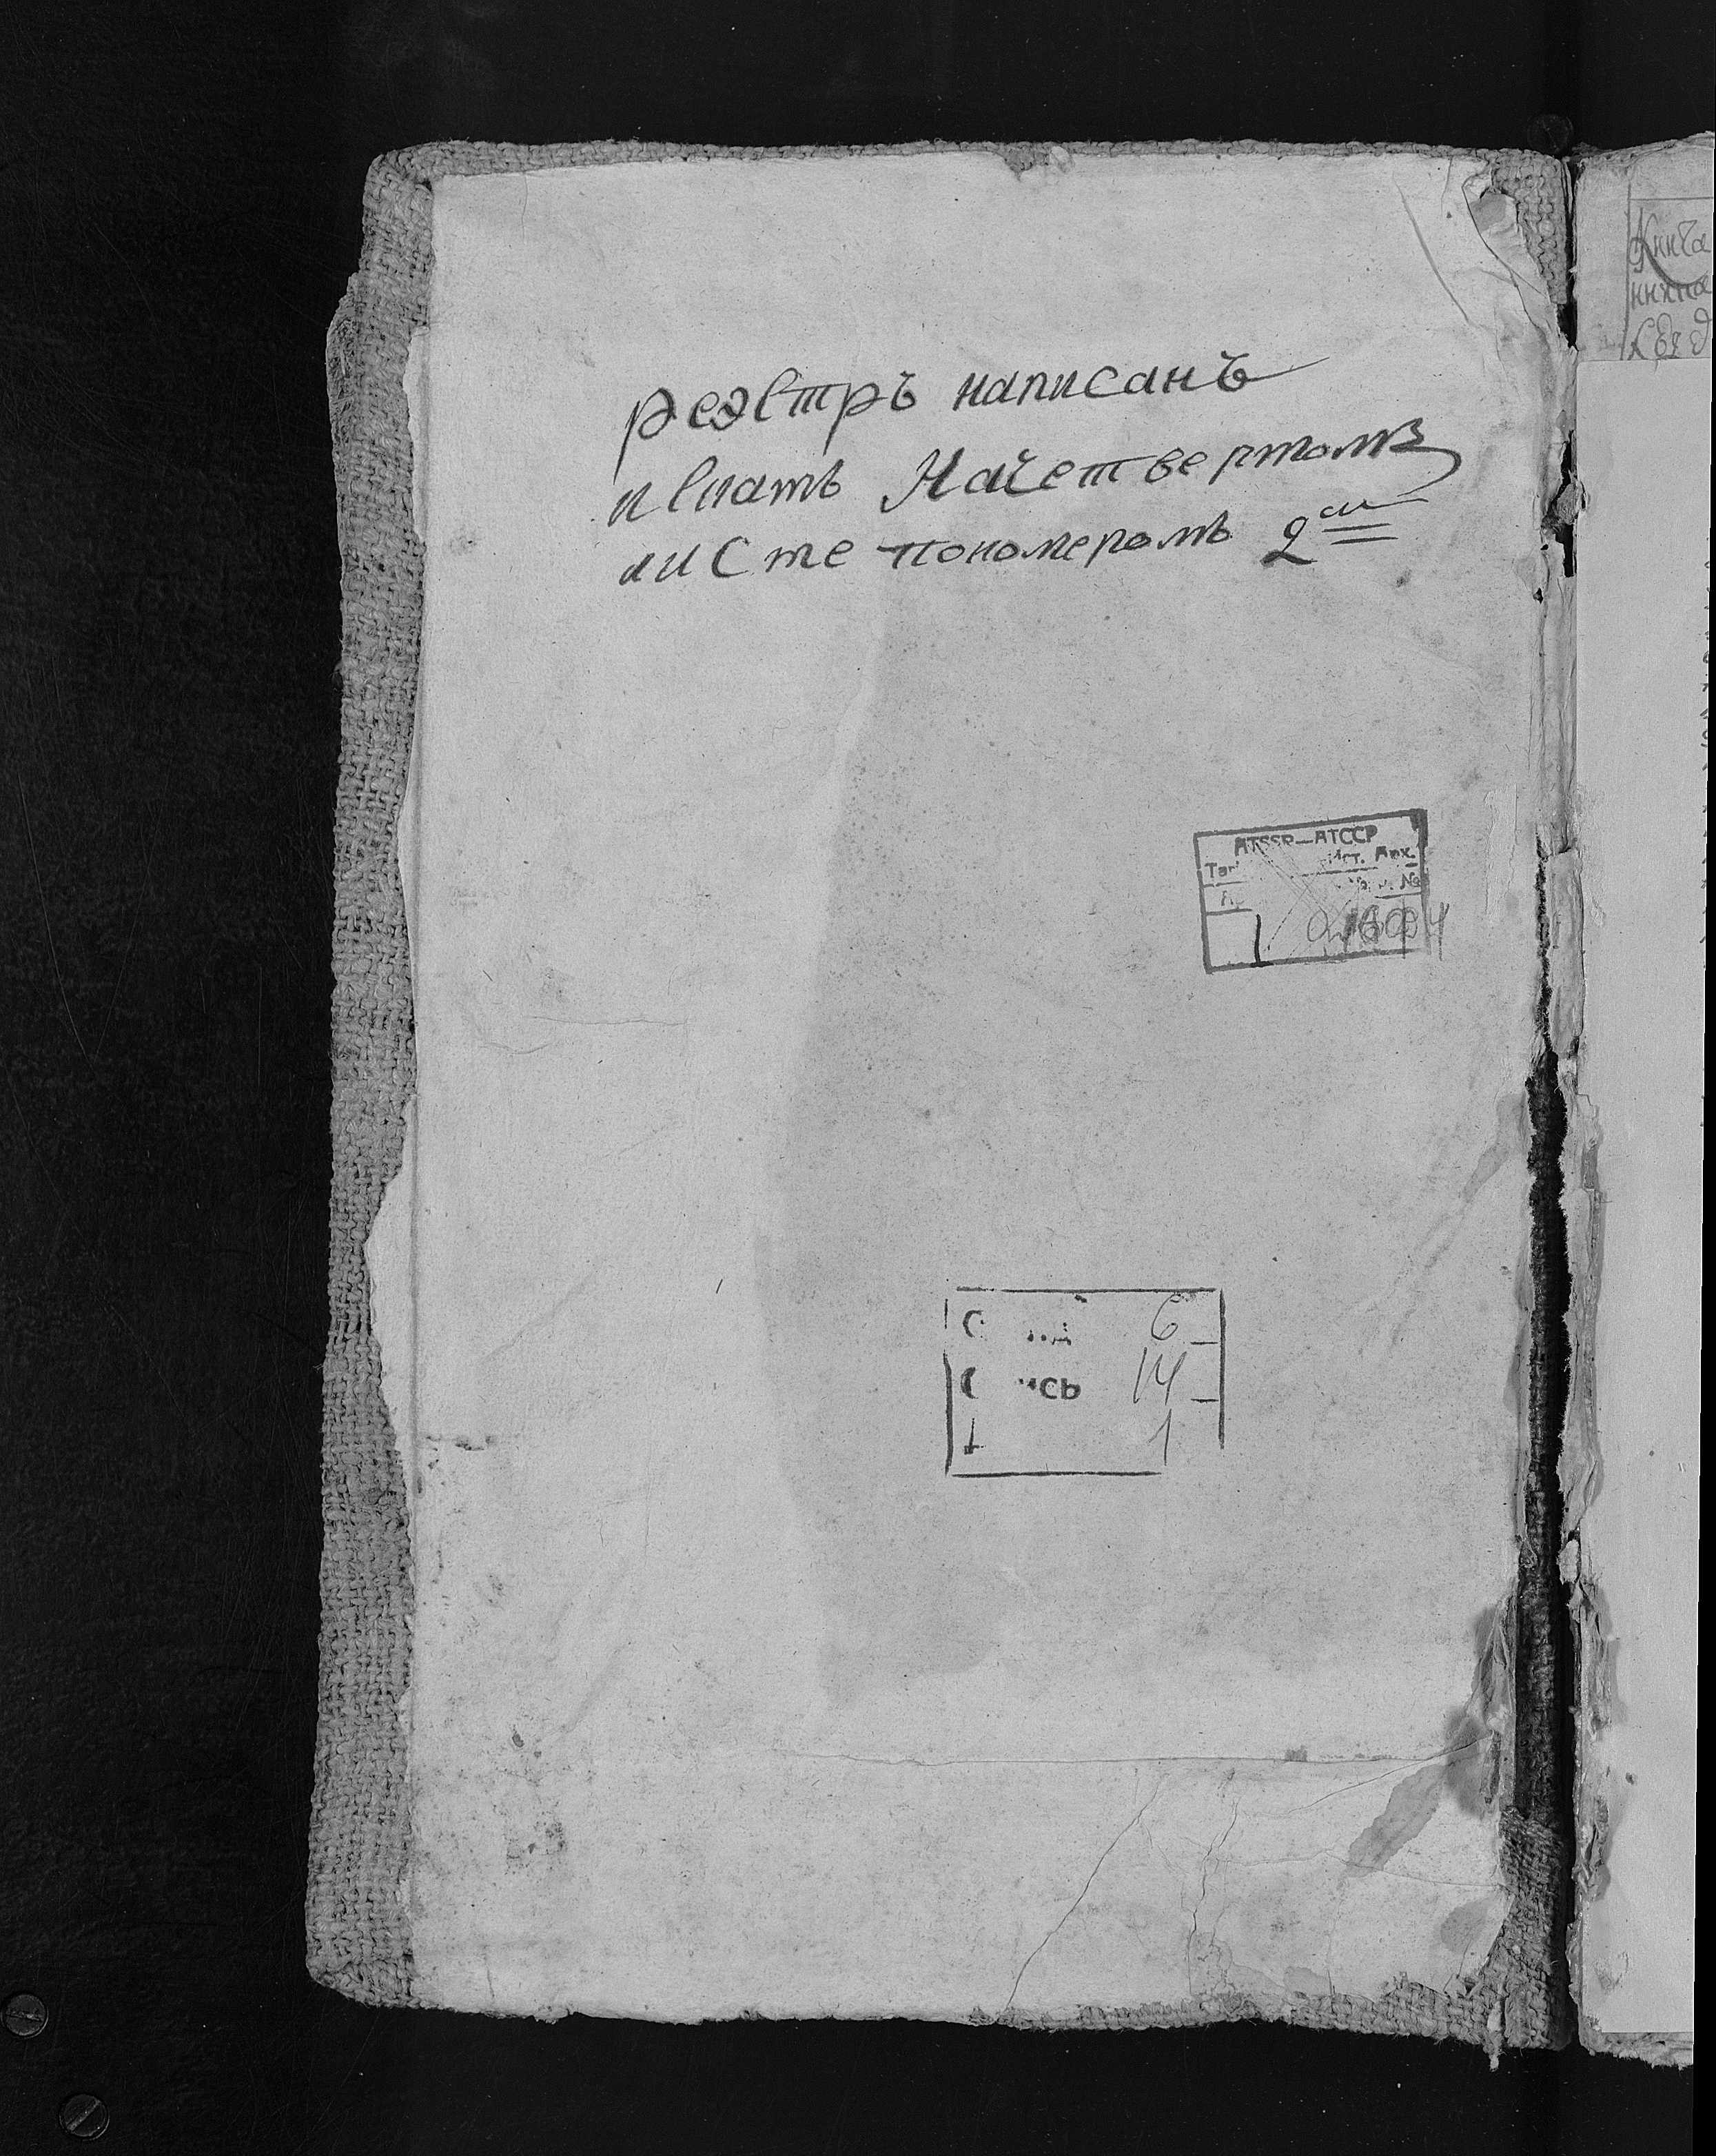 реэстръ написанъ
искать Начетвертомъ
листе пономеромъ 2ᵐ
ATSSR—АТССР
Ист. Арх.
№
6
ись 14
1
Книга